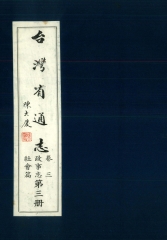 台灣省通志
陳大慶
卷三
政事志
社會篇
第三册